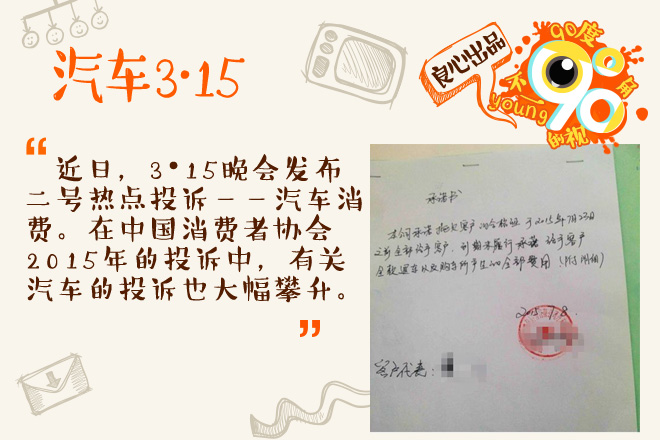 汽车3·15
良心出品
90度
不一
young
90°
角
的视
“
近日，3·15晚会发布
二号热点投诉－－汽车消
费。在中国消费者协会
2015年的投诉中，有关
汽车的投诉也大幅攀升。
”
承诺书
本公司承诺 拖欠客户的合格证 于2015年7月23日
之前全部给予客户，到期未履行承诺 给予客户
全款退车以及购车所产生的全部费用（附明细）
客户代表：